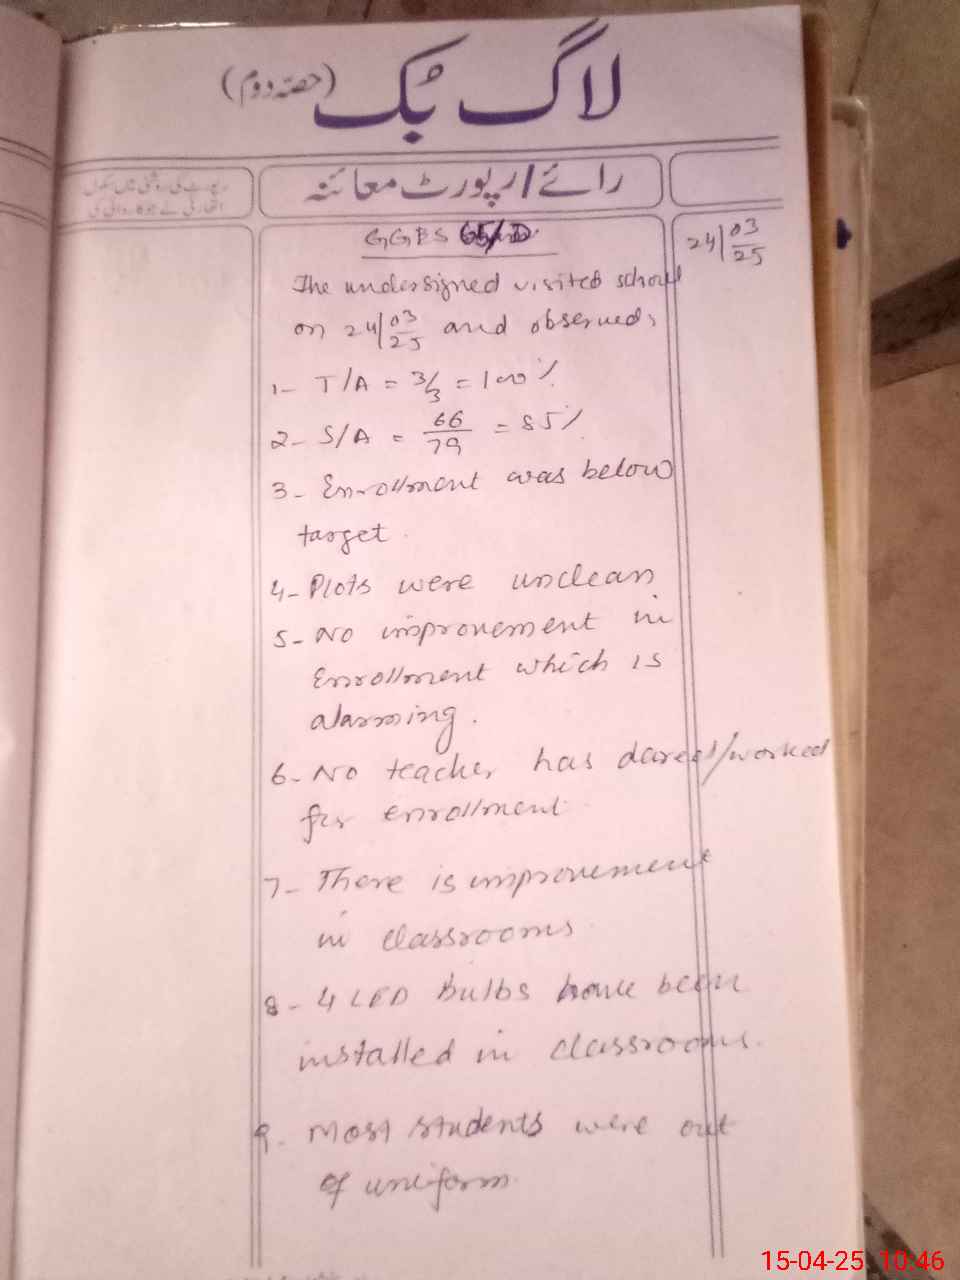 لاگ بُک (حصّہ دوم)
رائے/رپورٹ معائنہ
GGES 65/D
24/03/25
The undersigned visited school
on 24/03/25 and observed,
1- T/A = 3/3 = 100%
2- S/A = 66/79 = 85%
3- Enrollment was below
target.
4- Plots were unclean
5- No improvement in
Enrollment which is
alarming.
6- No teacher has /worked
for enrollment
7- There is improvement
in classrooms
8- 4 LED Bulbs have been
installed in classrooms.
9. Most students were out
of uniform.
15-04-25 10:46